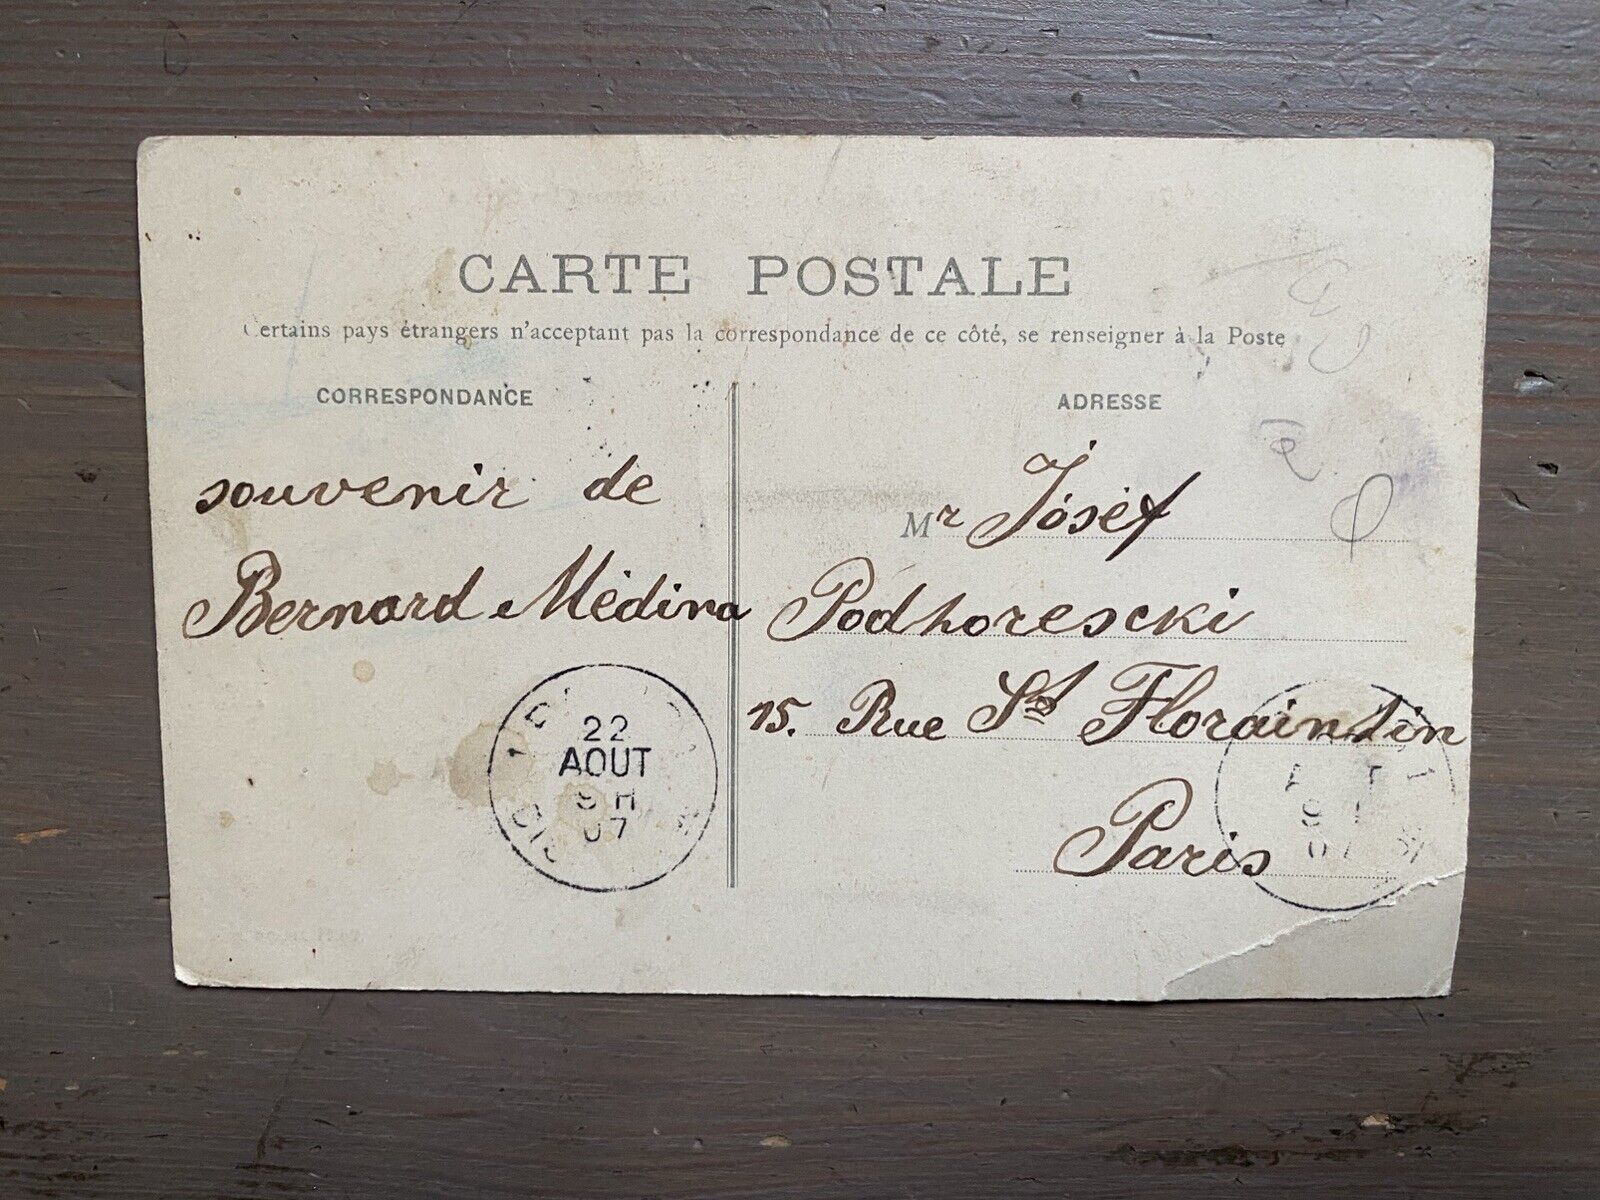 CARTE POSTALE
Certains pays étrangers n'acceptant pas la correspondance de ce côté, se renseigner à la Poste
CORRESPONDANCE
ADRESSE
souvenir de
Bernard Médina
Mr Jóséf
Podhorescki
15. Rue St Floraintin
Paris
22
AOUT
9 H
07